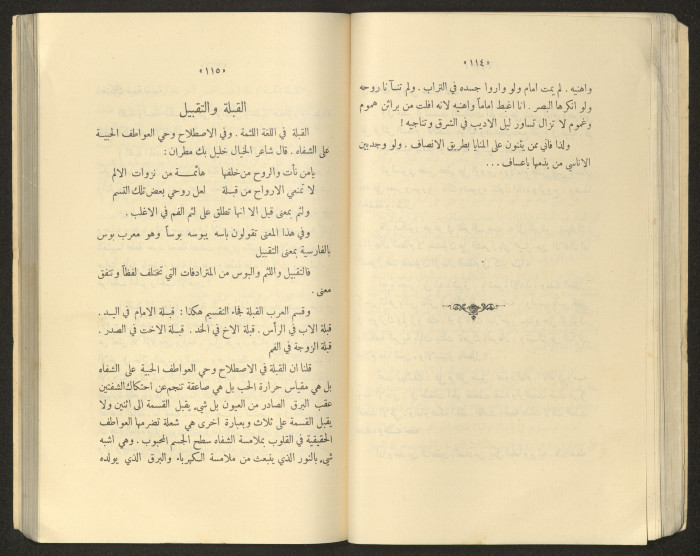 «١١٤»
واهنيه . لم يمت امام ولو واروا جسده في التراب . ولم تنسآ نا روحه
ولو انكرها البصر . انا اغبط اماماً واهنيه لانه افلت من براثن هموم
وغموم لا تزال تساور ليل الاديب في الشرق وتناجيه !
ولذا فاني ممن يثنون على المنايا بطريق الانصاف . ولو وجد بين
الاناسي من يذمها باعساف . . .
«١١٥»
القبلة والتقبيل
القبلة في اللغة اللثمة . وفي الاصطلاح وحي العواطف الحبية
على الشفاه . قال شاعر الخيال خليل بك مطران :
يا من نأت والروح من خلفها هائمة من نزوات الالم
لا تمنعي الارواح من قبلة لعل روحي بعض تلك القسم
ولثم بمعنى قبل الا انها تطلق على لثم الفم في الاغلب .
وفي هذا المعنى تقولون باسه يبوسه بوساً وهو معرب بوس
بالفارسية بمعنى التقبيل
فالتقبيل واللثم والبوس من المترادفات التي تختلف لفظاً وتتفق
معنى .
وقسم العرب القبلة فجاء التقسيم هكذا : قبلة الامام في اليد .
قبلة الاب في الرأس . قبلة الاخ في الخد . قبلة الاخت في الصدر .
قبلة الزوجة في الفم
قلنا ان القبلة في الاصطلاح وحي العواطف الحبية على الشفاه
بل هي مقياس حرارة الحب بل هي صاعقة تنجم عن احتكاك الشفتين
عقب البرق الصادر من العيون بل شيء يقبل القسمة الى اثنين ولا
يقبل القسمة على ثلاث وبعبارة اخرى هي شعلة تضرمها العواطف
الحقيقية في القلوب بملامسة الشفاه سطح الجسم المحبوب . وهي اشبه
شيء بالنور الذي ينبعث من ملامسة الكهرباء والبرق الذي يولده